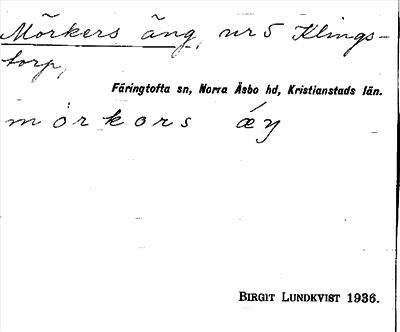 Mörkers äng, nr 5 Klings-
torp,
Färingtofta sn, Norra Åsbo hd, Kristianstads län.
mörkors æŋ
BIRGIT LUNDKVIST 1936.